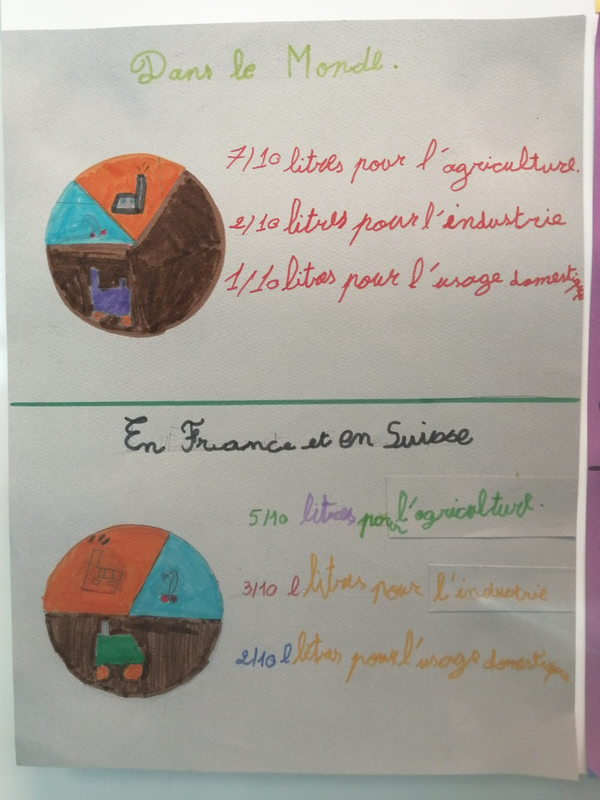 Dans le Monde.
7/10 litres pour l'agriculture.
2/10 litres pour l'industrie
1/10 litres pour l'usage domestique
En France et en Suisse
5/10 litres pour l'agriculture.
3/10 l litres pour l'industrie
2/10 l litres pour l'usage domestique